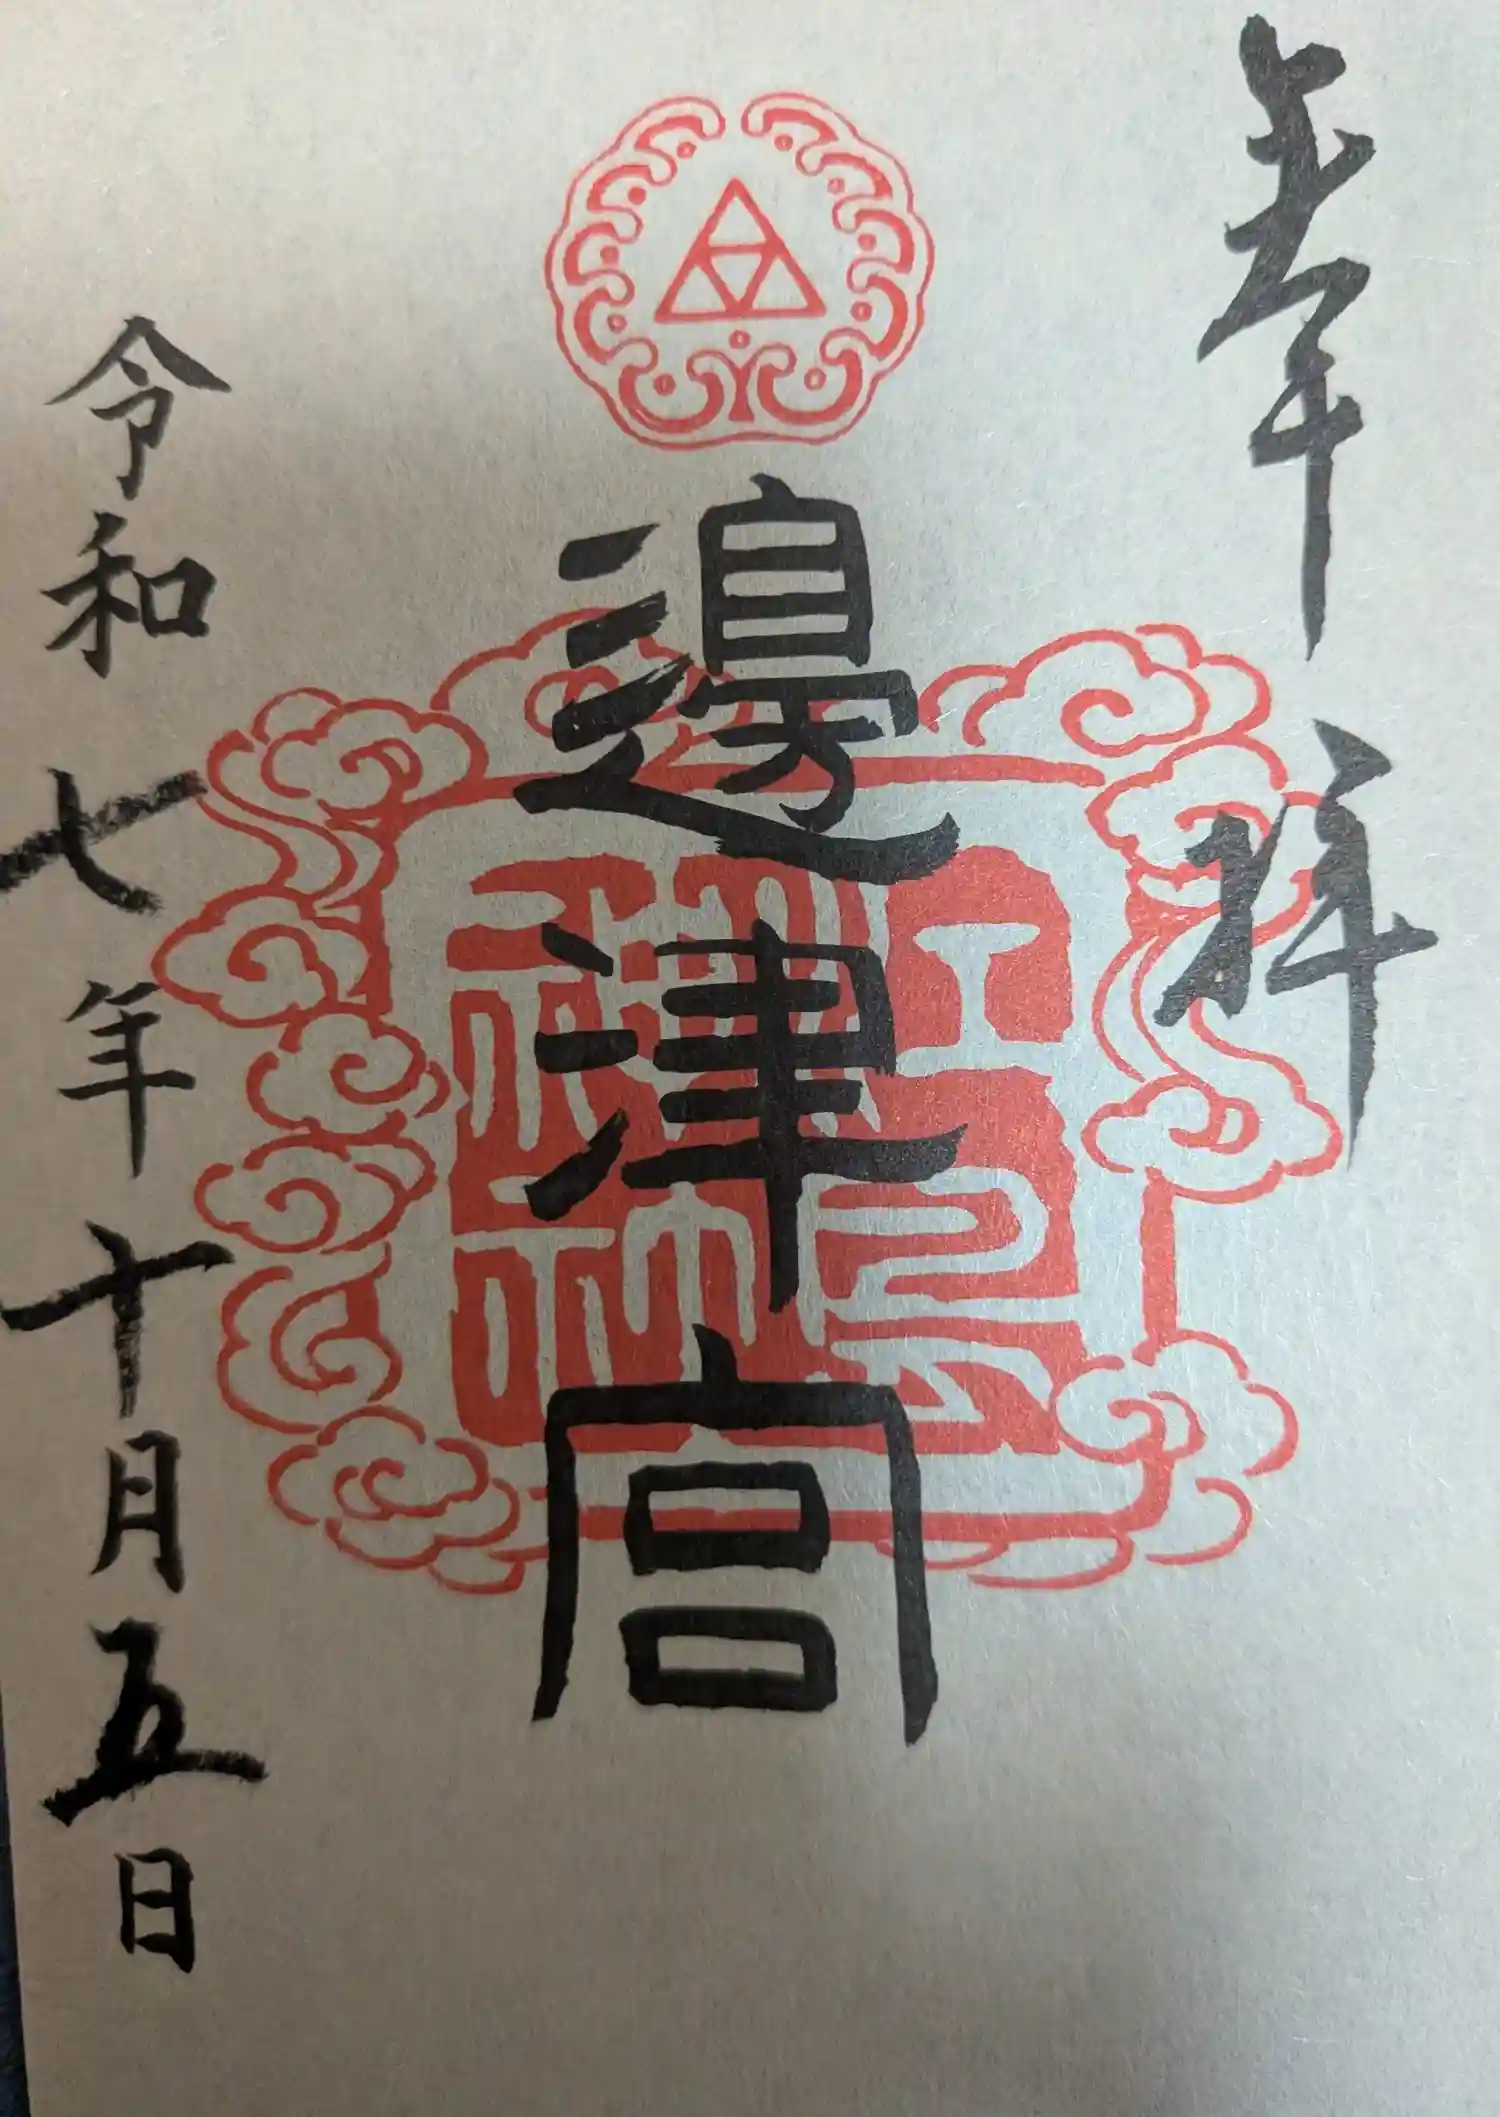 奉拝
邉津宮
令和七年十月五日